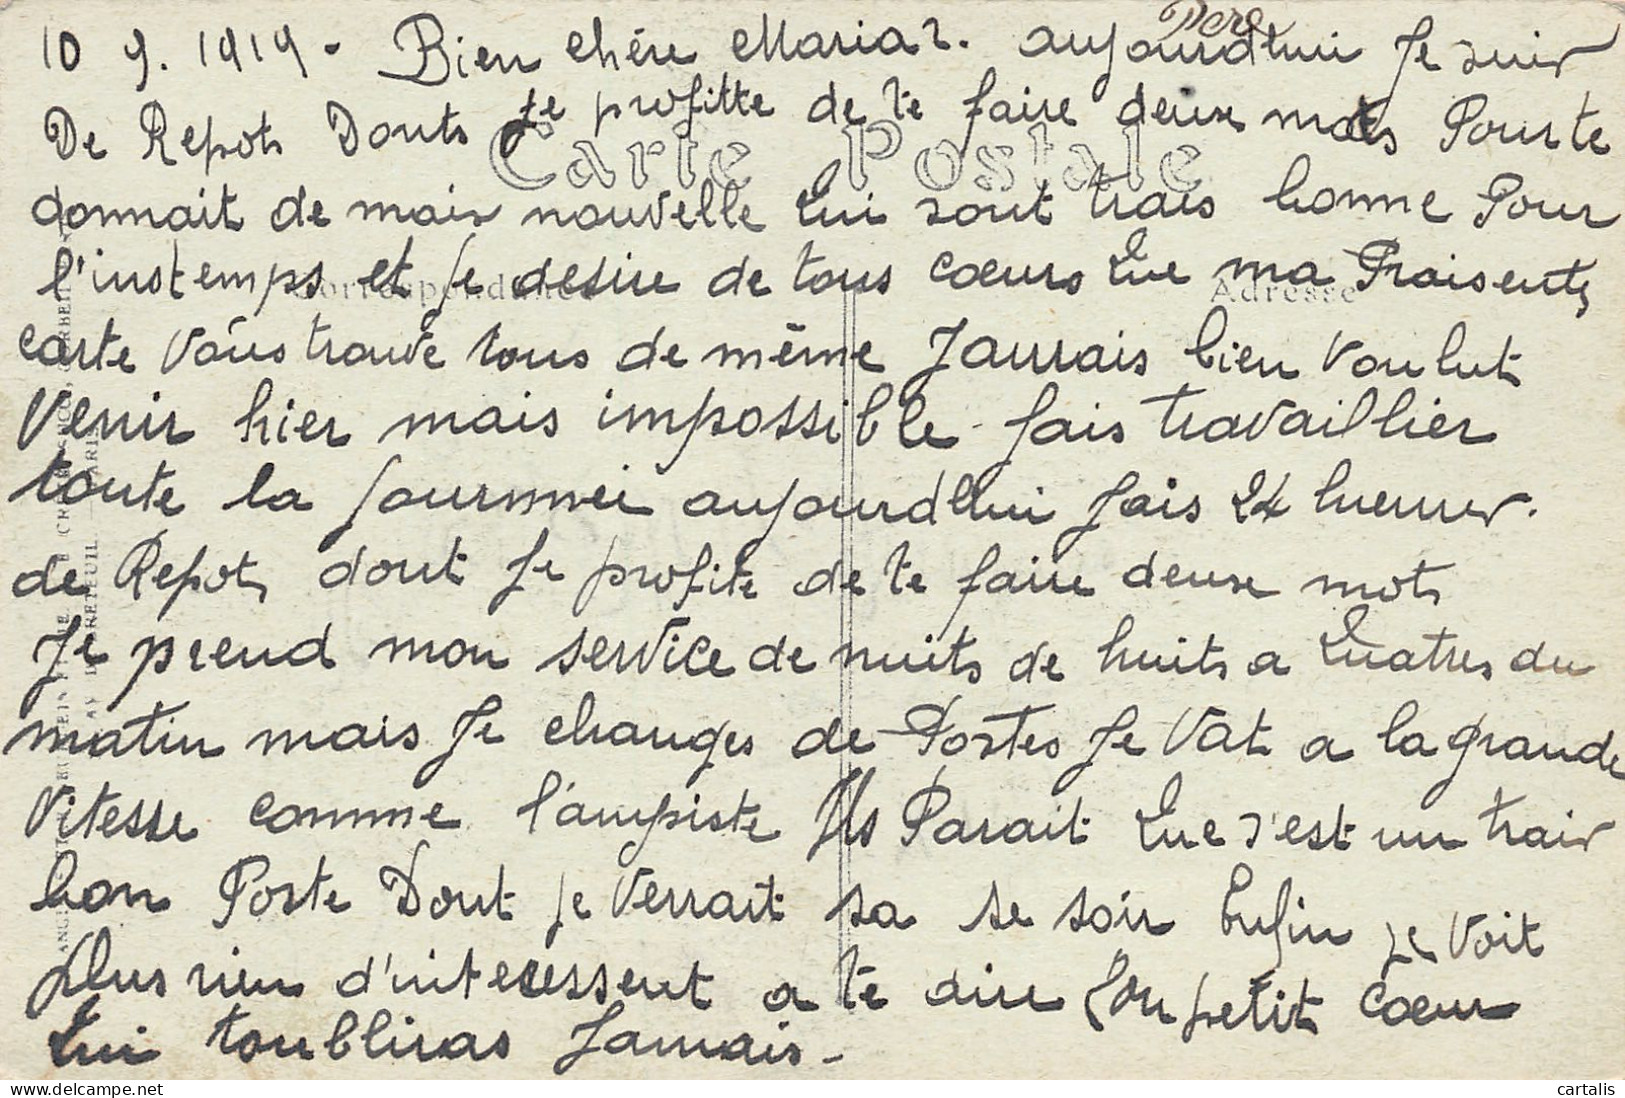 Pere
10 9. 1919 - Bien chére Maria 2. aujourdhui Je suis
De Repots Donts Je profitte de te faire deux mots Pourte
Carte Postale
donnait de mais nouvelle qui sont trais bonne Pour
l'instemps et Je desire de tous coeurs que ma Praisents
Correspondance Adresse
carte vous trouve tous de même Jaurais bien voulut
venir hier mais impossible fais travaillier
toute la Journnei aujourdhui Jais 24 hueures.
de Repots dont Je profite de te faire deux mots
Je prend mon service de nuits de huits a quatres du
matin mais Je changes de Postes Je vat a la grande
vitesse comme l'ampiste Ils Parait que s'est un trais
bon Poste Dont Je verrait sa se soir Enfin Je voit
plus rien d'interessent a te dire Ton petit coeur
qui toubliras Jamais -
https://www.delcampe.net
cartalis